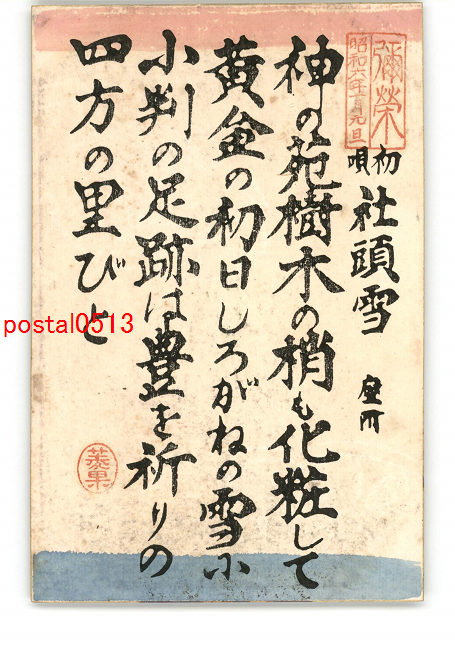 彌榮
昭和六年一月元旦
初唄 社頭雪
神の苑樹木の梢も化粧して
黄金の初日しろがねの雪小
小判の足跡は豊を祈りの
四方の里びと
postal0513